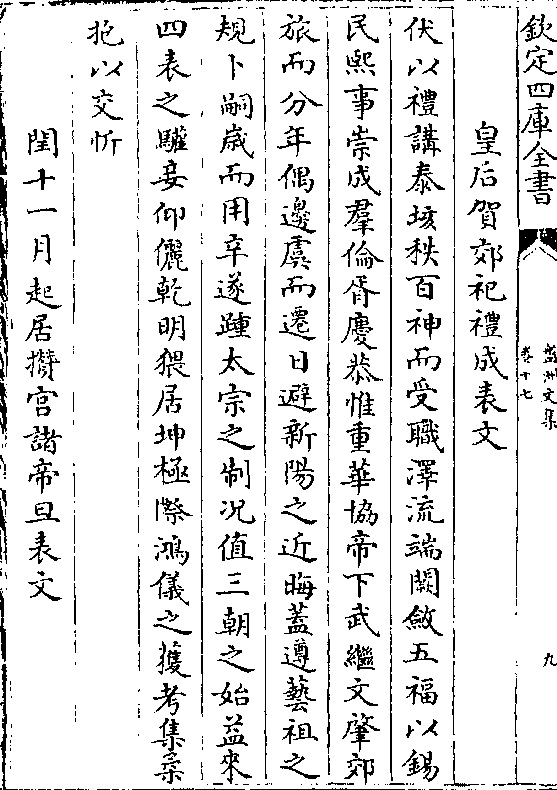 欽定四庫全書
盤洲文集
卷十七
九
皇后賀郊祀禮成表文
伏以禮講泰垓秩百神而受職澤流端闕斂五福以錫
民熙事崇成羣倫胥慶恭惟重華協帝下武繼文肇郊
旅而分年偶邊虞而遷日避新陽之近晦蓋遵藝祖之
規卜嗣歲而用辛遂踵太宗之制况值三朝之始益來
四表之驩妾仰儷乾明猥居坤極際鴻儀之獲考集衆
抱以交忻
閏十一月起居攢宫諸帝旦表文